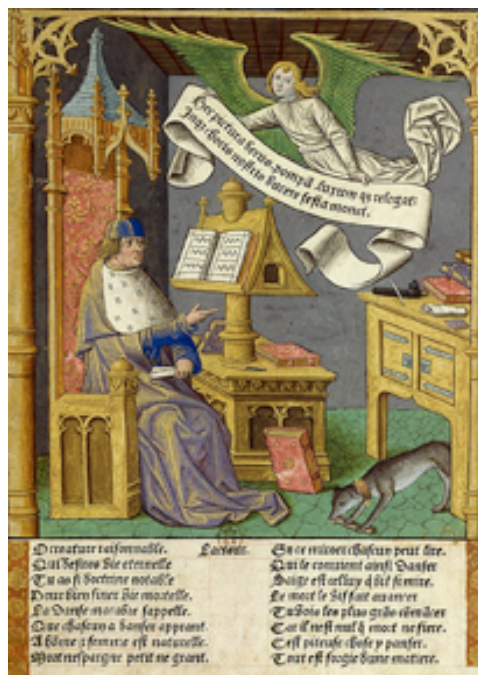 Hec pictura decus pompam luxum qz relegat:
Inqz choris nostris ducere festa monet.
O creature raisonnable.
Qui desires vie eternelle
Tu as cy doctrine notable
Pour bien finer vie mortelle.
La danse macabre sappelle.
Que chascun a danser apprant.
A homme et femme est naturelle.
Mort nespargne petit ne grant.
Lacteur.
En ce miroer chascun peut lire.
Qui le convient ainsi danser
Saige est celluy qui bien si mire.
Le mort le vif fait avancer
Tu vois les plus grans commancer
Car il nest nul que mort ne fiere.
Cest piteuse chose y panser.
Tout est forgie dune matiere.